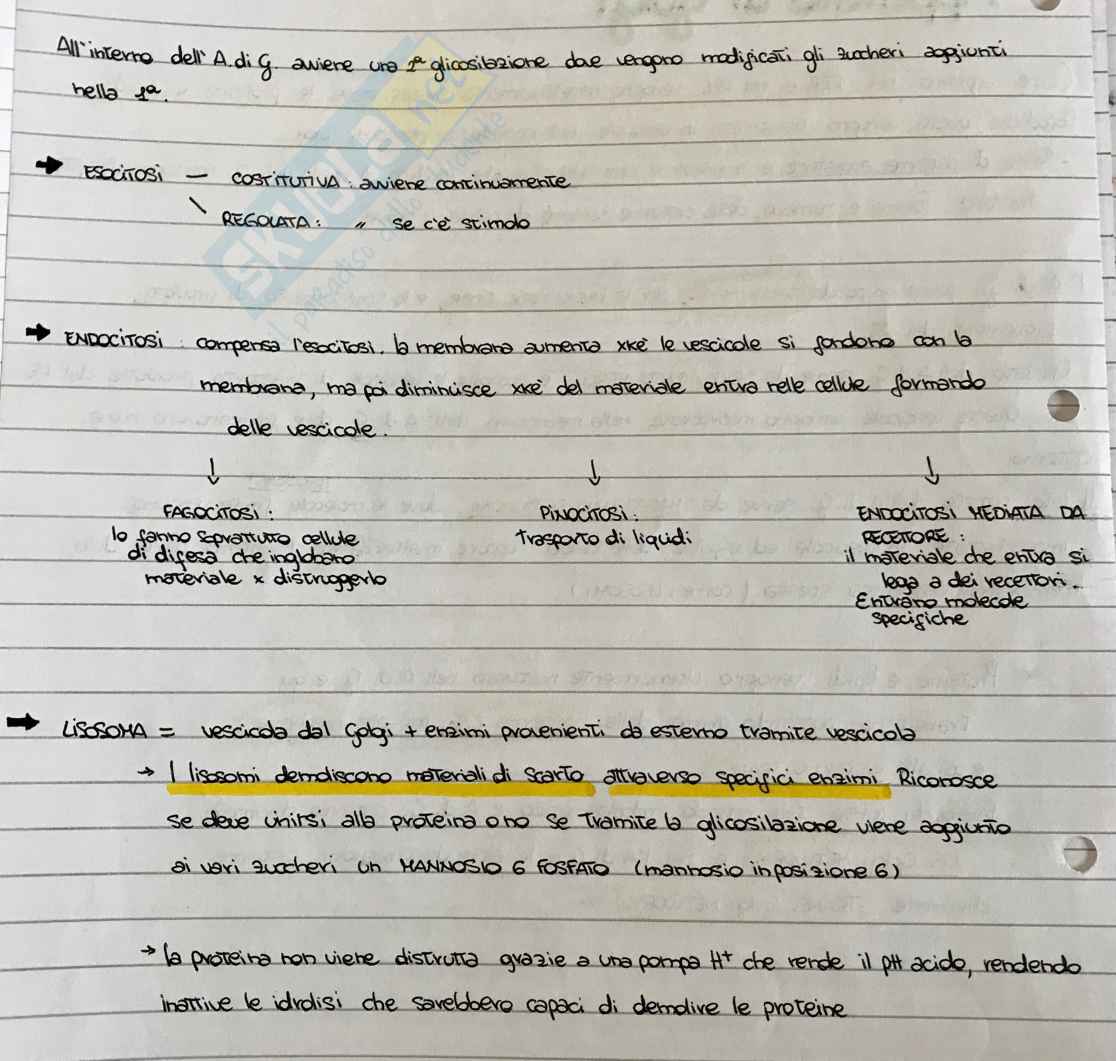 All'interno dell'A.di G. avviene una 2ª glicosilazione dove vengono modificati gli zuccheri aggiunti
nella 1ª.
→ ESOCITOSI — COSTITUTIVA: avviene continuamente
\ REGOLATA: " se c'è stimolo
→ ENDOCITOSI: compensa l'esocitosi. la membrana aumenta xkè le vescicole si fondono con la
membrana, ma poi diminuisce xkè del materiale entra nelle cellule formando
delle vescicole.
↓ ↓ ↓
FAGOCITOSI: PINOCITOSI: ENDOCITOSI MEDIATA DA
lo fanno soprattutto cellule Trasporto di liquidi RECETTORE:
di difesa che inglobano il materiale che entra si
materiale x distruggerlo lega a dei recettori.
Entrano molecole
specifiche
→ LISOSOMA = vescicola dal Golgi + enzimi provenienti da esterno tramite vescicola
→ I lisosomi demoliscono materiali di scarto attraverso specifici enzimi Riconosce
se deve unirsi alla proteina o no se Tramite la glicosilazione viene aggiunto
ai vari zuccheri un MANNOSIO 6 FOSFATO (mannosio in posizione 6)
→ la proteina non viene distrutta grazie a una pompa H⁺ che rende il pH acido, rendendo
inattive le idrolisi che sarebbero capaci di demolire le proteine
skuola.net
il paradiso dello studente